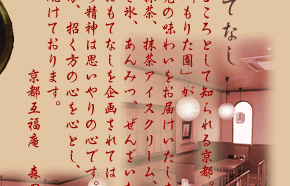 てなし
ころとして知られる京都。
もりた園」が
見の味わいをお届けいたしま
抹茶、抹茶アイスクリーム、
き氷、あんみつ、ぜんざいな
おもてなしを企画されては
う精神は思いやりの心です。
が、招く方の心を心とし、
続けております。
京都互福庵 森